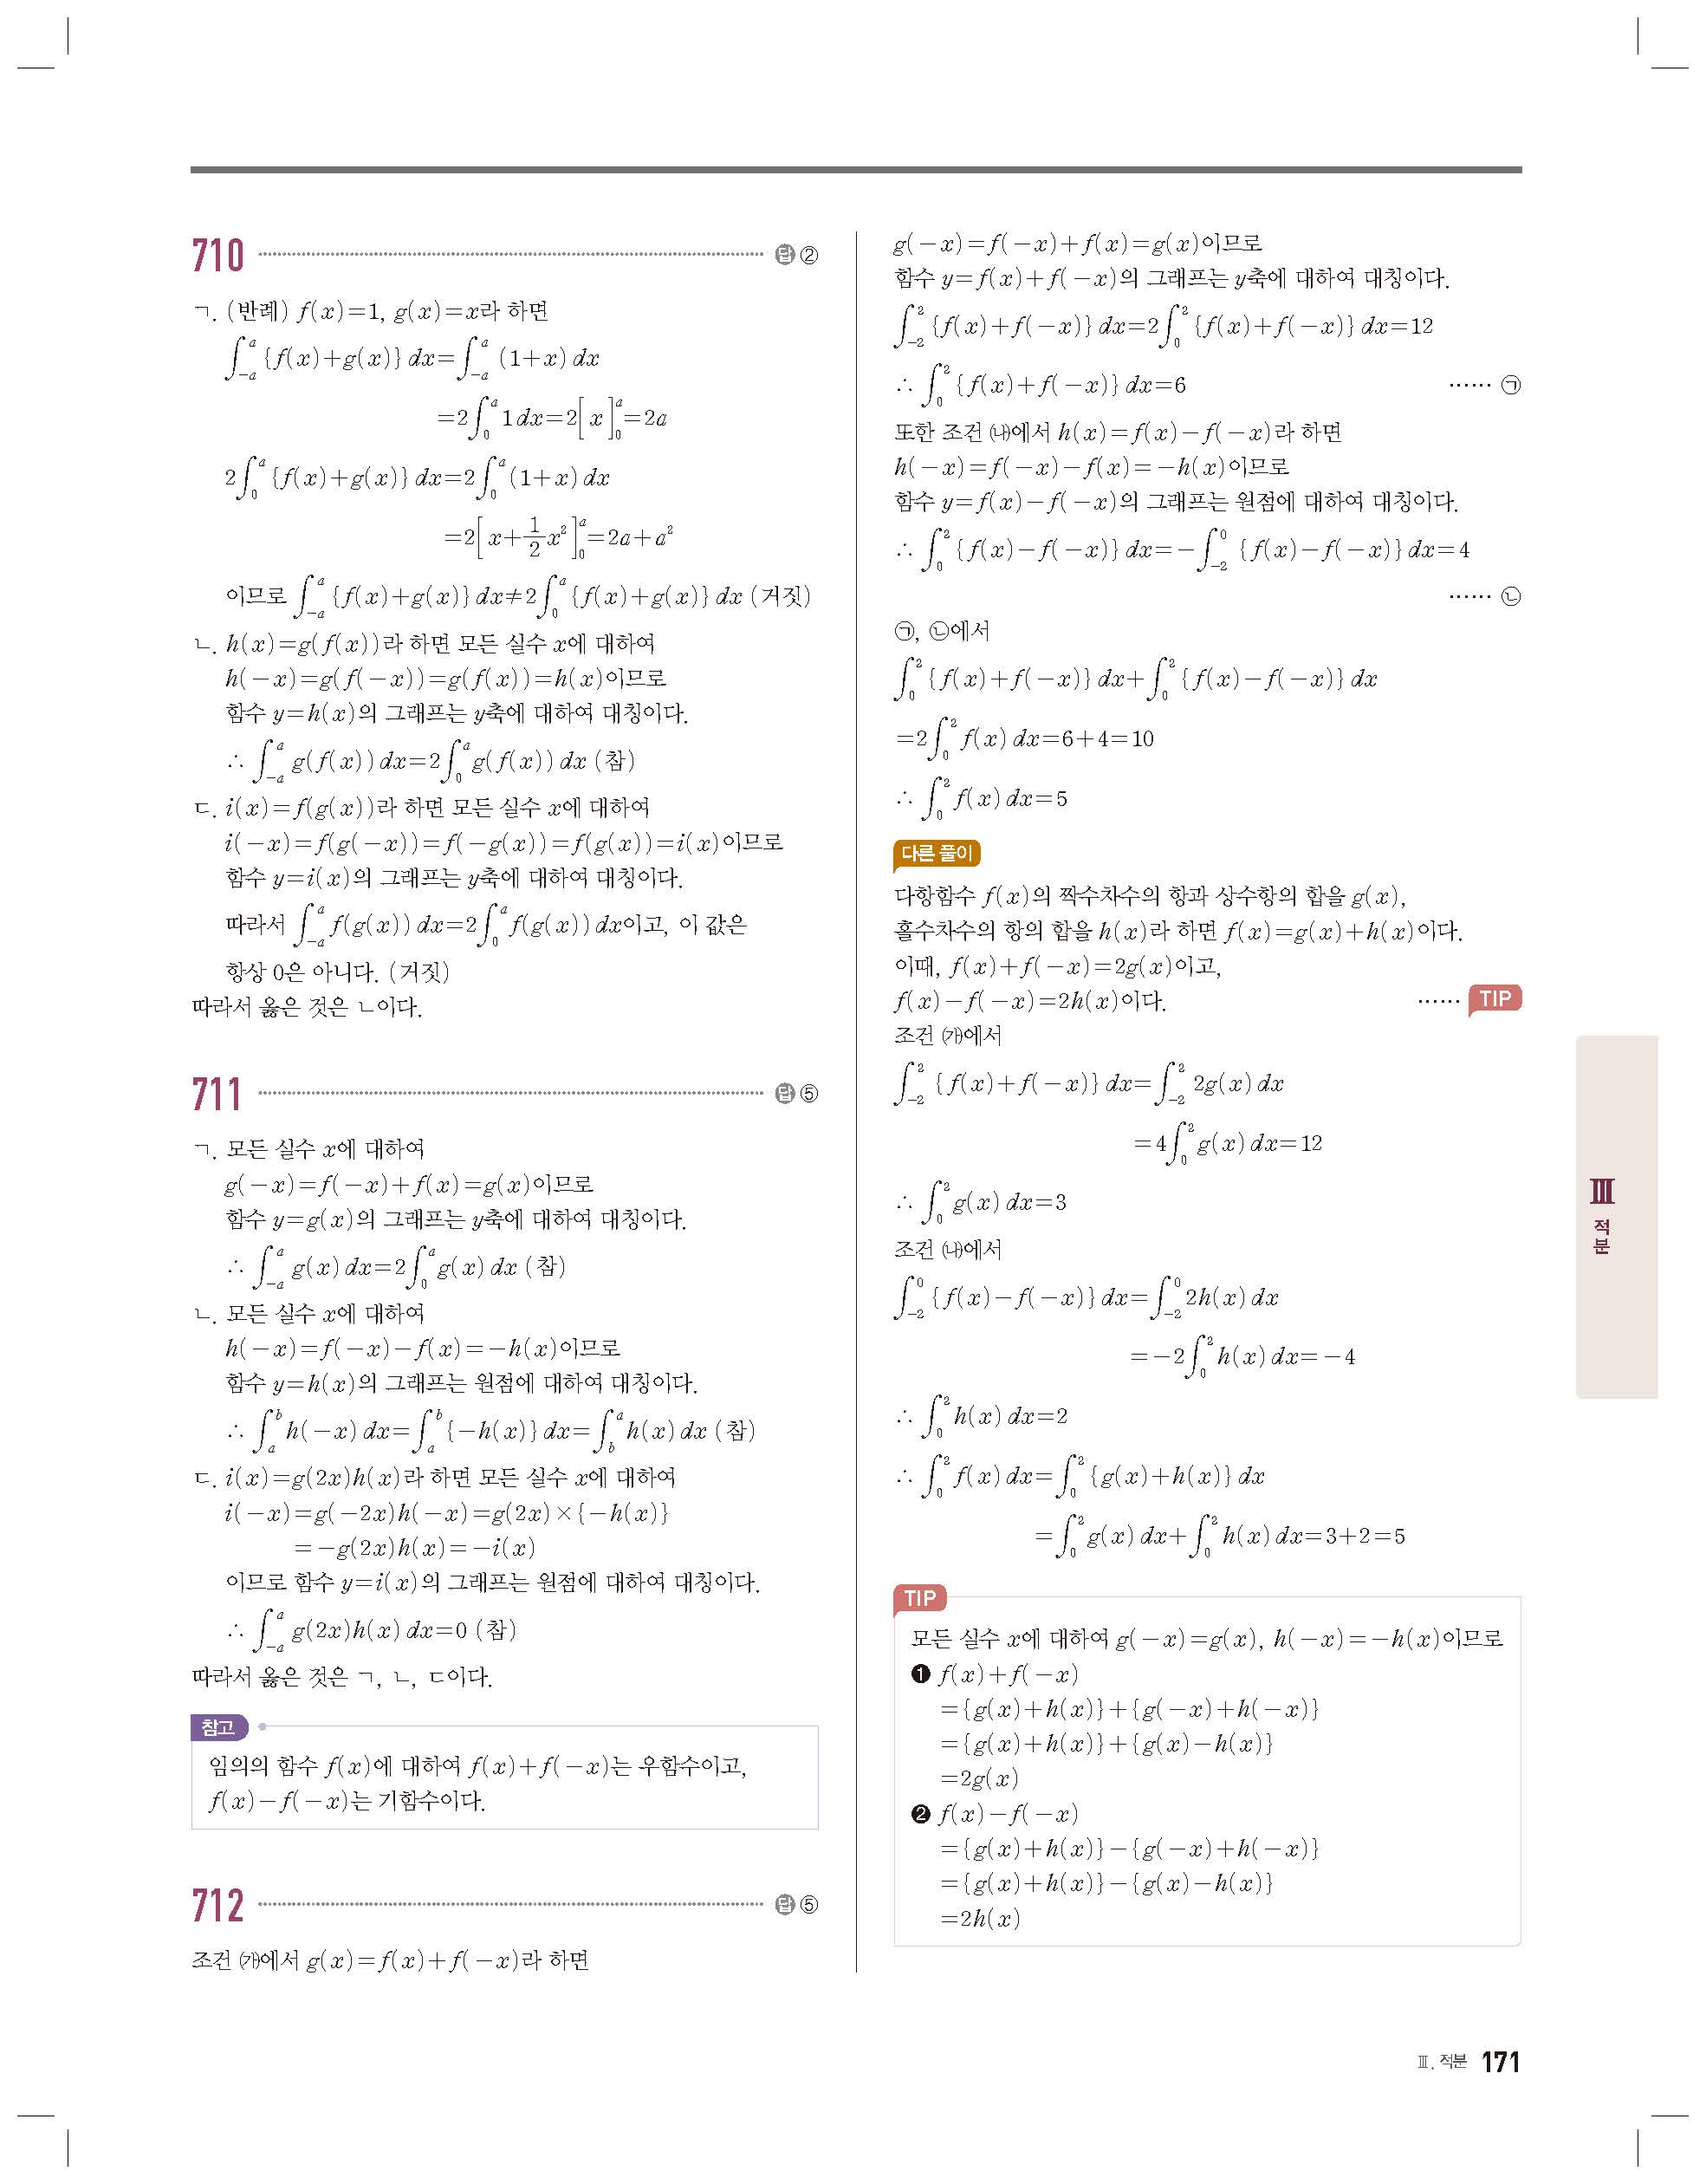 710 답 ②
ㄱ. (반례) f(x)=1, g(x)=x라 하면
∫_{-a}^{a} {f(x)+g(x)} dx=∫_{-a}^{a} (1+x) dx
=2∫_{0}^{a} 1dx=2[x]_{0}^{a}=2a
2∫_{0}^{a} {f(x)+g(x)} dx=2∫_{0}^{a} (1+x) dx
=2[x+1/2x²]_{0}^{a}=2a+a²
이므로 ∫_{-a}^{a} {f(x)+g(x)} dx≠2∫_{0}^{a} {f(x)+g(x)} dx (거짓)
ㄴ. h(x)=g(f(x))라 하면 모든 실수 x에 대하여
h(-x)=g(f(-x))=g(f(x))=h(x)이므로
함수 y=h(x)의 그래프는 y축에 대하여 대칭이다.
∴ ∫_{-a}^{a} g(f(x)) dx=2∫_{0}^{a} g(f(x)) dx (참)
ㄷ. i(x)=f(g(x))라 하면 모든 실수 x에 대하여
i(-x)=f(g(-x))=f(-g(x))=f(g(x))=i(x)이므로
함수 y=i(x)의 그래프는 y축에 대하여 대칭이다.
따라서 ∫_{-a}^{a} f(g(x)) dx=2∫_{0}^{a} f(g(x)) dx이고, 이 값은
항상 0은 아니다. (거짓)
따라서 옳은 것은 ㄴ이다.
711 답 ⑤
ㄱ. 모든 실수 x에 대하여
g(-x)=f(-x)+f(x)=g(x)이므로
함수 y=g(x)의 그래프는 y축에 대하여 대칭이다.
∴ ∫_{-a}^{a} g(x) dx=2∫_{0}^{a} g(x) dx (참)
ㄴ. 모든 실수 x에 대하여
h(-x)=f(-x)-f(x)=-h(x)이므로
함수 y=h(x)의 그래프는 원점에 대하여 대칭이다.
∴ ∫_{a}^{b} h(-x) dx=∫_{a}^{b} {-h(x)} dx=∫_{b}^{a} h(x) dx (참)
ㄷ. i(x)=g(2x)h(x)라 하면 모든 실수 x에 대하여
i(-x)=g(-2x)h(-x)=g(2x)×{-h(x)}
=-g(2x)h(x)=-i(x)
이므로 함수 y=i(x)의 그래프는 원점에 대하여 대칭이다.
∴ ∫_{-a}^{a} g(2x)h(x) dx=0 (참)
따라서 옳은 것은 ㄱ, ㄴ, ㄷ이다.
참고
임의의 함수 f(x)에 대하여 f(x)+f(-x)는 우함수이고,
f(x)-f(-x)는 기함수이다.
712 답 ⑤
조건 ㈎에서 g(x)=f(x)+f(-x)라 하면
g(-x)=f(-x)+f(x)=g(x)이므로
함수 y=f(x)+f(-x)의 그래프는 y축에 대하여 대칭이다.
∫_{-2}^{2} {f(x)+f(-x)} dx=2∫_{0}^{2} {f(x)+f(-x)} dx=12
∴ ∫_{0}^{2} {f(x)+f(-x)} dx=6 …… ㉠
또한 조건 ㈏에서 h(x)=f(x)-f(-x)라 하면
h(-x)=f(-x)-f(x)=-h(x)이므로
함수 y=f(x)-f(-x)의 그래프는 원점에 대하여 대칭이다.
∴ ∫_{0}^{2} {f(x)-f(-x)} dx=-∫_{-2}^{0} {f(x)-f(-x)} dx=4
…… ㉡
㉠, ㉡에서
∫_{0}^{2} {f(x)+f(-x)} dx+∫_{0}^{2} {f(x)-f(-x)} dx
=2∫_{0}^{2} f(x) dx=6+4=10
∴ ∫_{0}^{2} f(x) dx=5
다른 풀이
다항함수 f(x)의 짝수차수의 항과 상수항의 합을 g(x),
홀수차수의 항의 합을 h(x)라 하면 f(x)=g(x)+h(x)이다.
이때, f(x)+f(-x)=2g(x)이고,
f(x)-f(-x)=2h(x)이다. …… TIP
조건 ㈎에서
∫_{-2}^{2} {f(x)+f(-x)} dx=∫_{-2}^{2} 2g(x) dx
=4∫_{0}^{2} g(x) dx=12
∴ ∫_{0}^{2} g(x) dx=3
조건 ㈏에서
∫_{-2}^{0} {f(x)-f(-x)} dx=∫_{-2}^{0} 2h(x) dx
=-2∫_{0}^{2} h(x) dx=-4
∴ ∫_{0}^{2} h(x) dx=2
∴ ∫_{0}^{2} f(x) dx=∫_{0}^{2} {g(x)+h(x)} dx
=∫_{0}^{2} g(x) dx+∫_{0}^{2} h(x) dx=3+2=5
TIP
모든 실수 x에 대하여 g(-x)=g(x), h(-x)=-h(x)이므로
❶ f(x)+f(-x)
={g(x)+h(x)}+{g(-x)+h(-x)}
={g(x)+h(x)}+{g(x)-h(x)}
=2g(x)
❷ f(x)-f(-x)
={g(x)+h(x)}-{g(-x)+h(-x)}
={g(x)+h(x)}-{g(x)-h(x)}
=2h(x)
Ⅲ
적분
Ⅲ. 적분 171